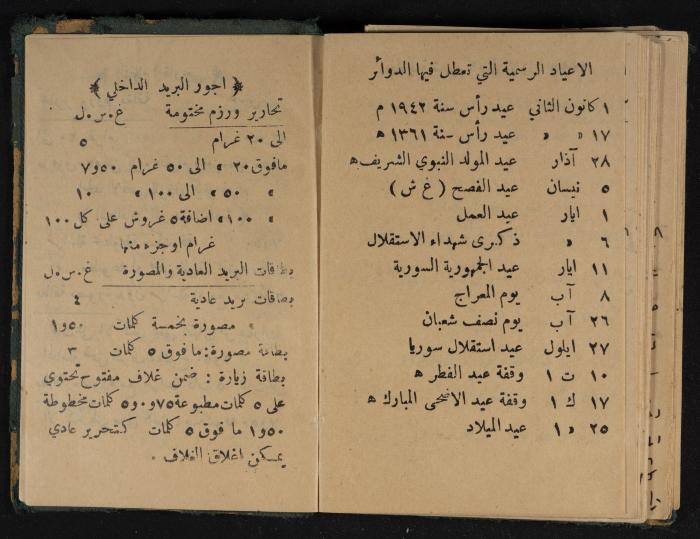 الاعياد الرسمية التي تعطل فيها الدوائر
١ كانون الثاني عيد رأس سنة ١٩٤٢ م
١٧ » » عيد رأس سنة ١٣٦١ ه
٢٨ آذار عيد المولد النبوي الشريف ه
٥ نيسان عيد الفصح ( غ ش )
١ ايار عيد العمل
٦ » ذكرى شهداء الاستقلال
١١ ايار عيد الجمهورية السورية
٨ آب يوم المعراج
٢٦ آب يوم نصف شعبان
٢٧ ايلول عيد استقلال سوريا
١٠ ت ١ وقفة عيد الفطر ه
١٧ ك ١ وقفة عيد الاضحى المبارك ه
٢٥ » ١ عيد الميلاد
﴿ اجور البريد الداخلي ﴾
تحارير ورزم مختومة غ.س.ل
الى ٢٠ غرام ٥
مافوق ٢٠ » الى ٥٠ غرام ٥٠و٧
» ٥٠ » الى ١٠٠ » ١٠
» ١٠٠ » اضافة ٥ غروش على كل ١٠٠
غرام او جزء منها
بطاقات البريد العادية والمصورة غ.س.ل
بطاقات بريد عادية ٤
» مصورة بخمسة كلمات ٥٠و١
بطاقة مصورة: ما فوق ٥ كلمات ٣
بطاقة زيارة : ضمن غلاف مفتوح تحتوي
على ٥ كلمات مطبوعة ٧٥و٠ و٥ كلمات مخطوطة
٥٠و١ ما فوق ٥ كلمات كتحرير عادي
يمكن اغلاق الغلاف .